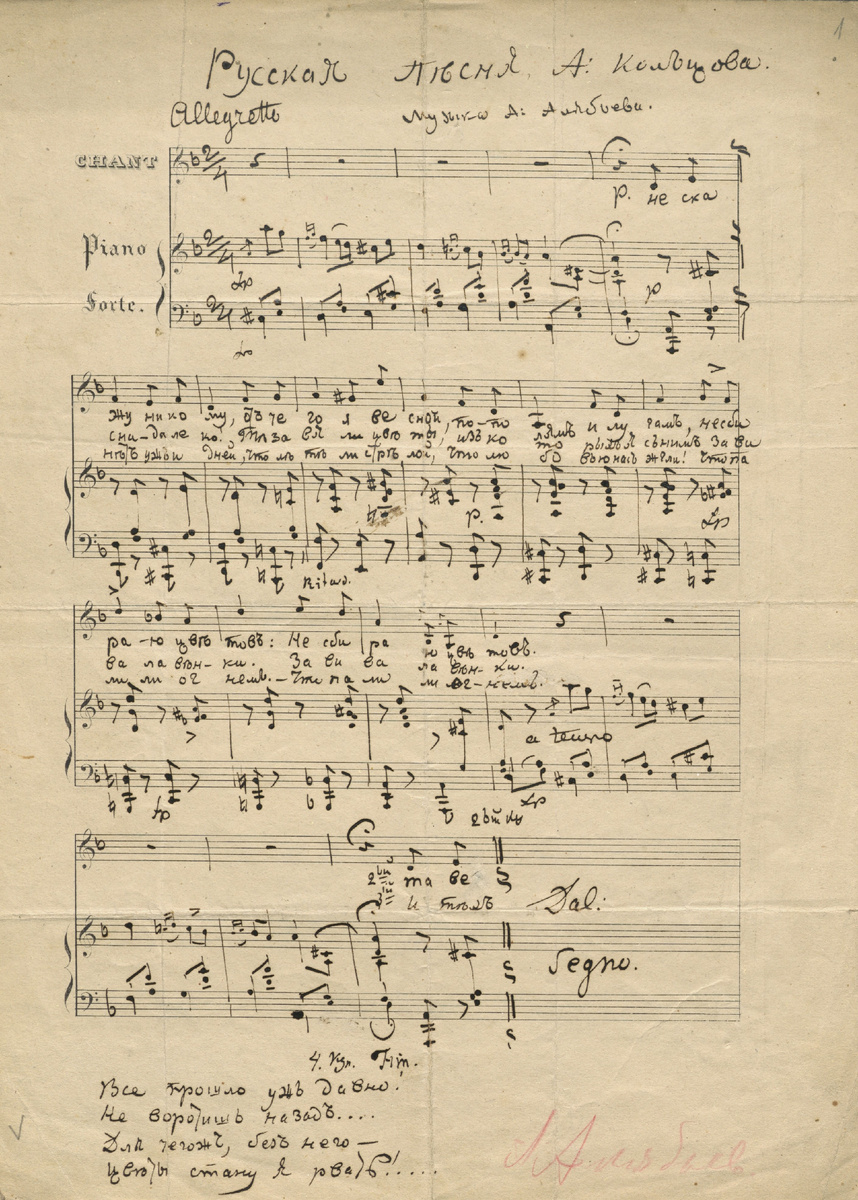 1
Русская пѣсня, А: Кольцова.
Allegretto Музыка А: Алябьева.
CHANT
Р. не ска
Piano
Forte.
жу нико му, отъ че го я ве сной, по-по лямъ и лу гамъ, несби
сни-дале ко; Та за вя ли цвѣ ты, изъ ко то рыхъ я съ нимъ За ви
тѣхъ ужъ дней, что лѣ тѣ ли стрѣ лой, Что лю бо вью насъ жгли! Что па
p.
Ritard.
ра-ю цвѣ товъ: Не сби ра ю цвѣ товъ.
ва ла вѣн-ки. За ви ва ла вѣн-ки.
ли ли ог немъ.- Что па ли ли ог-немъ.
a tempo
2й
та ве
3й
И тѣхъ
Dal:
Segno.
4. Куп. Fin.
Все прошло ужъ давно!
Не воротишь назадъ....
Для чегожъ, безъ него —
Цвѣты стану я рвать!....
А Алябьев